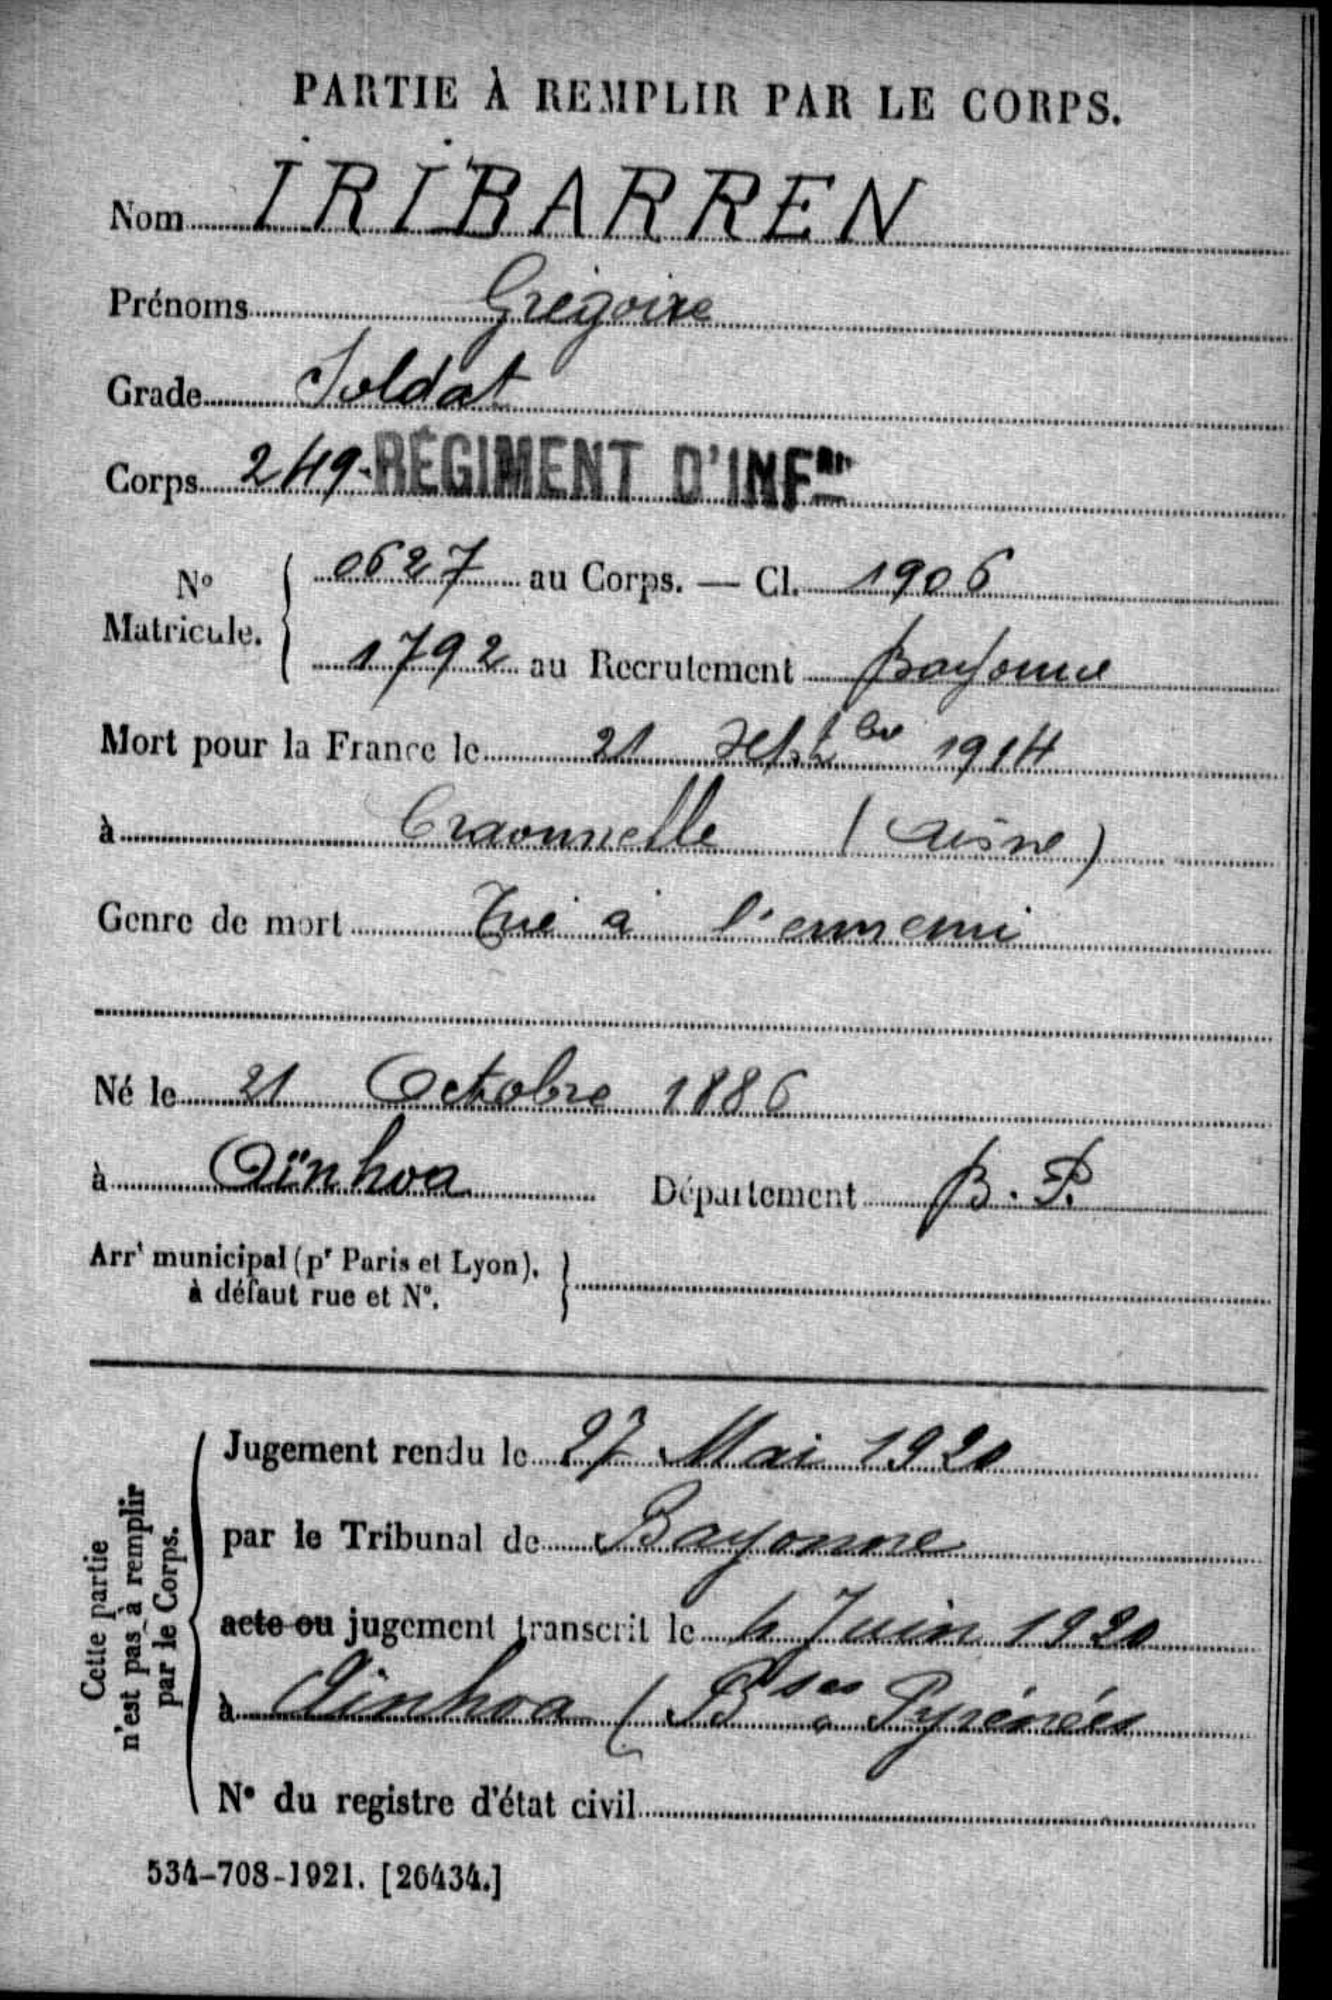 PARTIE À REMPLIR PAR LE CORPS.
Nom IRIBARREN
Prénoms Grégoire
Grade Soldat
Corps 249 RÉGIMENT D'INFie
No Matricule. { 0627 au Corps. — Cl. 1906
1792 au Recrutement Bayonne
Mort pour la France le 21 Septbre 1914
à Craonnelle (Aisne)
Genre de mort Tué à l'ennemi
Né le 21 Octobre 1886
à Aïnhoa Département B. P.
Arrt municipal (pr Paris et Lyon), }
à défaut rue et No.
Cette partie
n'est pas à remplir
par le Corps.
Jugement rendu le 27 Mai 1920
par le Tribunal de Bayonne
acte ou jugement transcrit le 4 Juin 1920
à Aïnhoa (Bses Pyrénées
No du registre d'état civil
534-708-1921. [26434.]